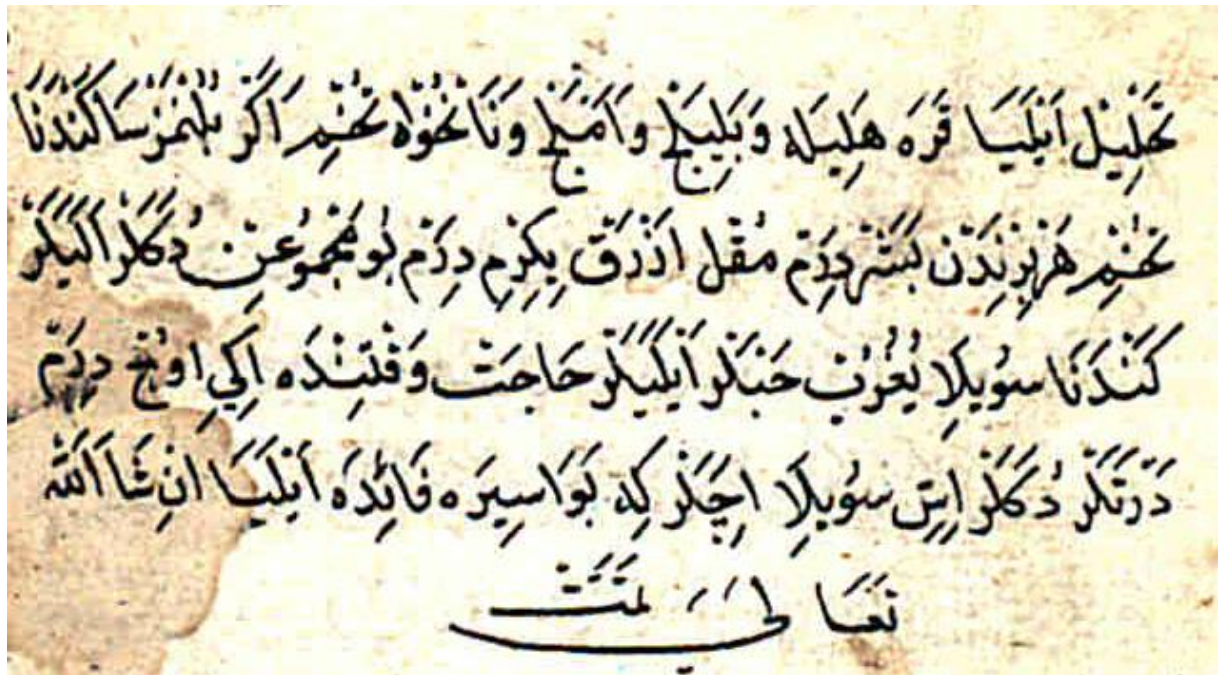 تَحْلِيلْ اَيْلَيَا قَرَه هَلِيلَه وَبَلِيلَجْ وَاَمْلَجْ وَنَانْخُوَاه تُخْمِ اَكَرْ بُلُنْمَزْسَا كَنْدَنَا
تُخْمِ هَرْ بِرِنْدَنْ بَشَرْ دِرَمْ مُقْلِ اَزْرَقْ يِكِرْمِ دِرَمْ بُو مَجْمُوعِنْ دُكَلَرْ اَلَيَلَرْ
كَنْدَنَا سُويِلَا يُغُرُبْ حَبْلَرْ اَيْلَيَلَرْ حَاجَتْ وَقْتِنْدَه اِكِي اوُجْ دِرَمْ
دَرْتَلَرْ دُكَلَرْ اِسِّ سُويِلَا اِچَلَرْ كِه بَوَاسِيرَه فَائِدَه اَيْلَيَا اِنْ شَا اَللّٰه
تَعَالَى تَمَّتْ